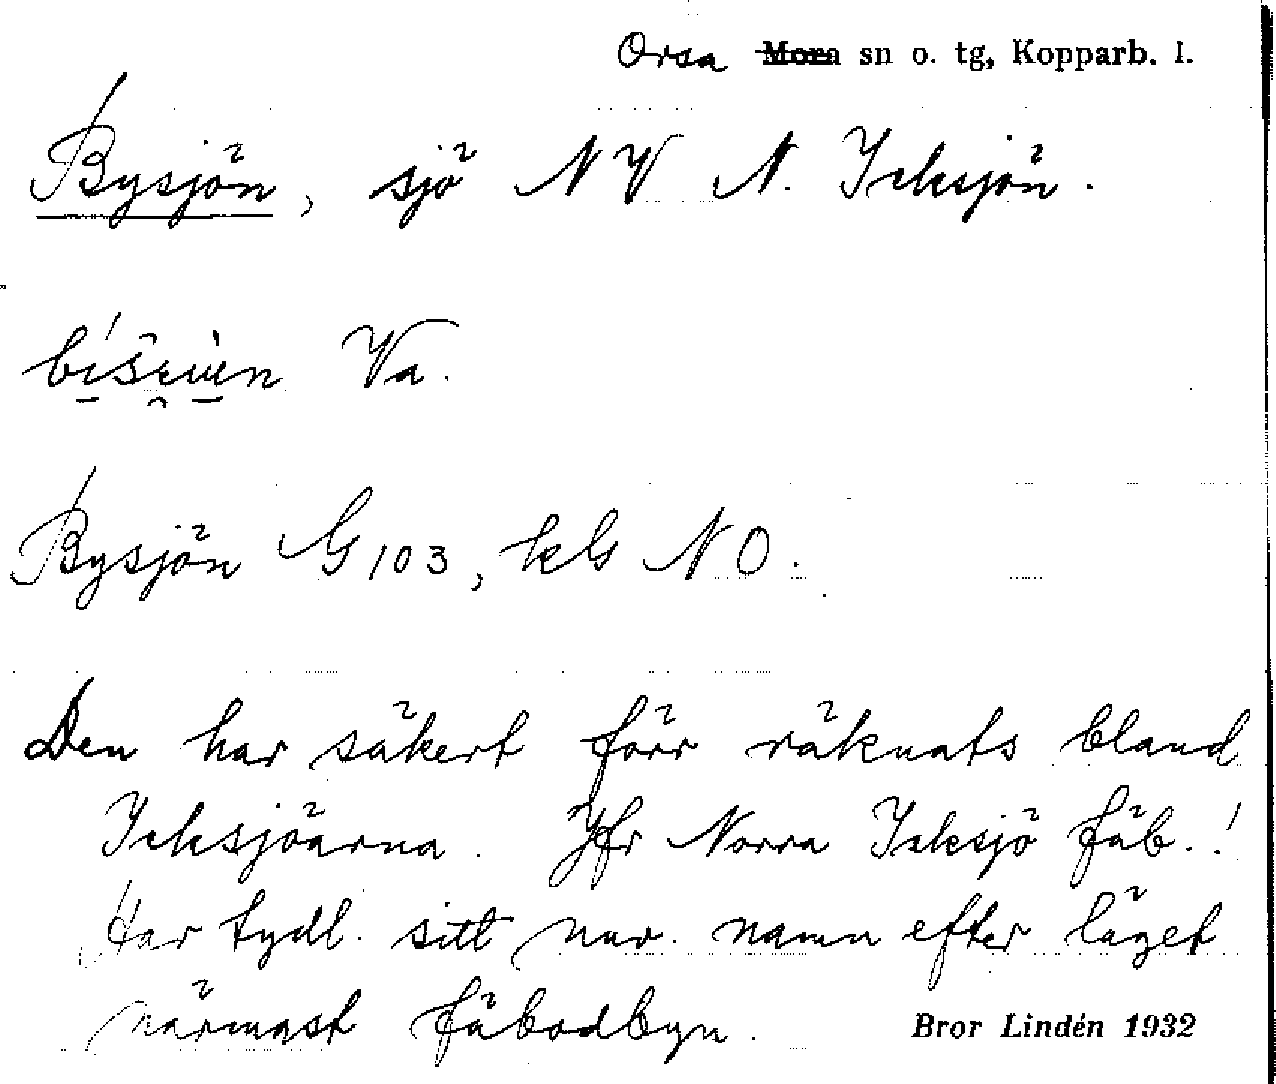 Orsa Mora sn o. tg, Kopparb. l.
Bysjön, sjö NV N. Icksjön.
Va.
Bysjön G 103, kls NO.
Den har säkert förr räknats bland
Icksjöarna. Jfr Norra Icksjö fäb.!
Har tydl. sitt nuv. namn efter läget
närmast fäbodbyn.
Bror Lindén 1932